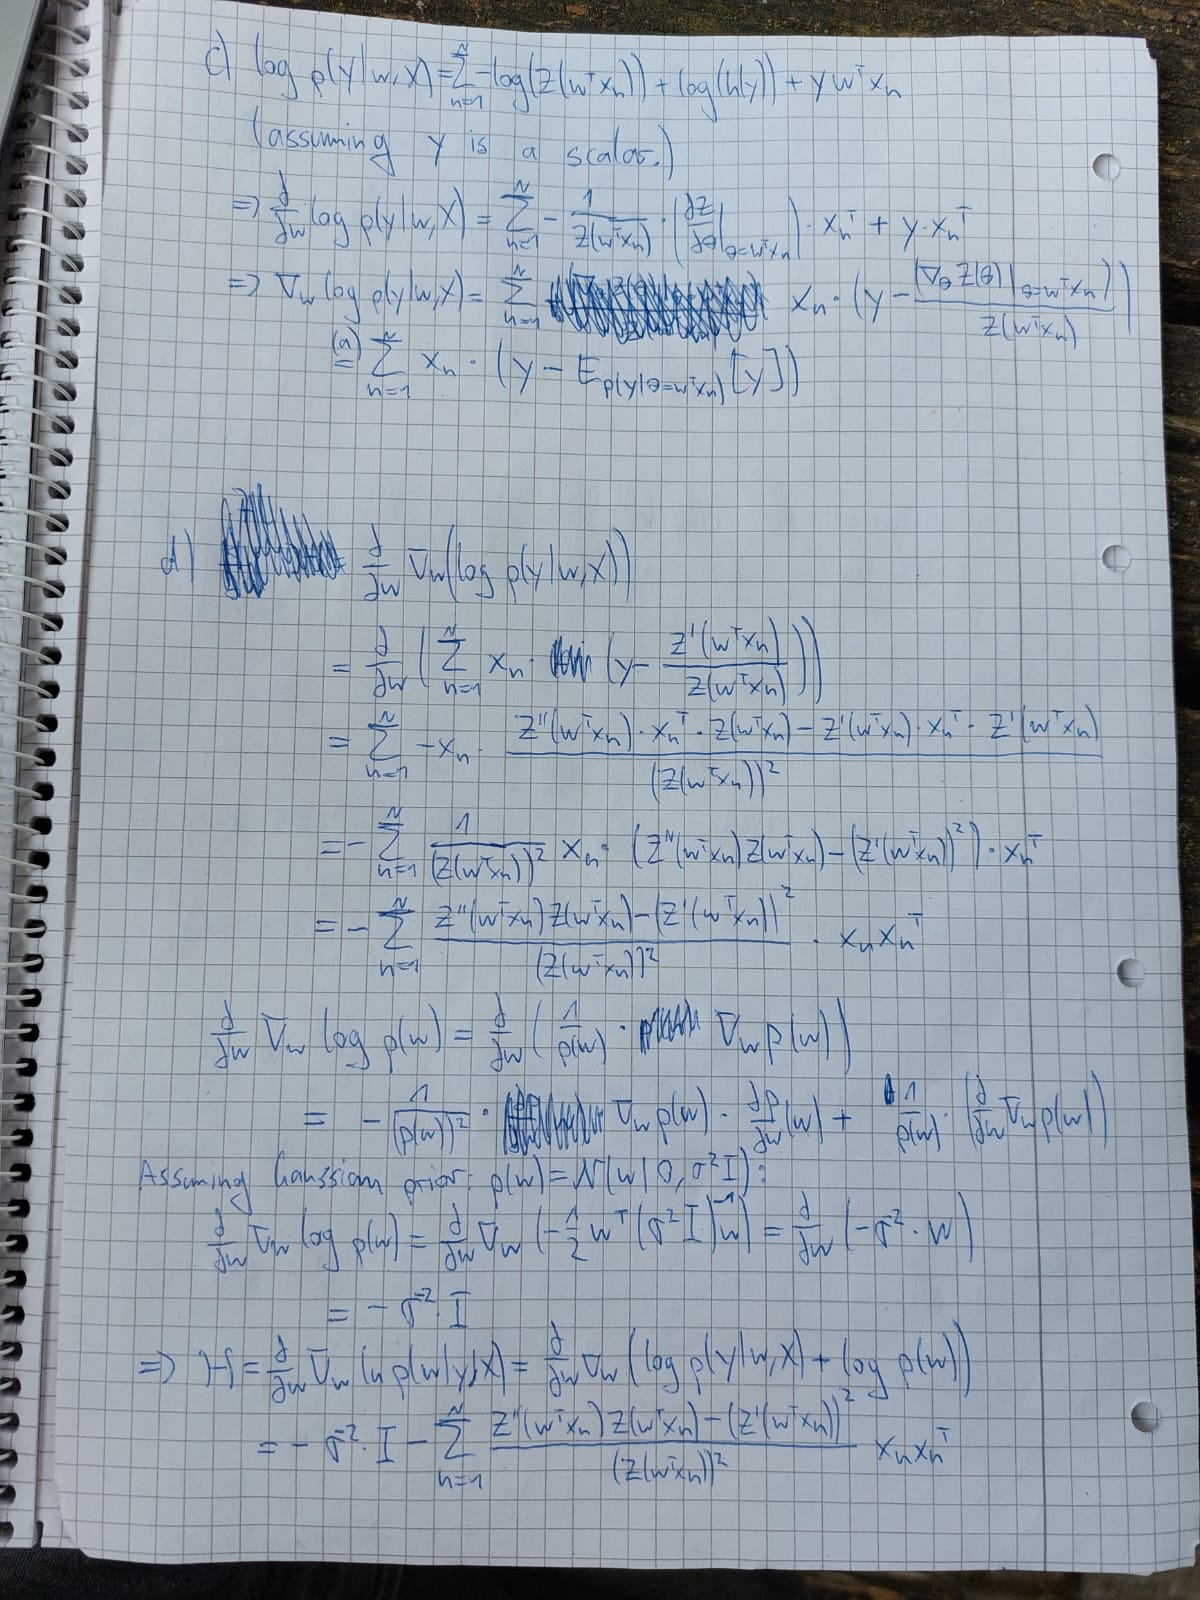 c) log p(y|w,X) = ∑_{n=1}^N -log(Z(wᵀxₙ)) + log(h(y)) + y wᵀxₙ
(assuming y is a scalar.)
⇒ ∂/∂w log p(y|w,X) = ∑_{n=1}^N - 1/Z(wᵀxₙ) · (∂Z/∂θ|_{θ=wᵀxₙ}) · xₙᵀ + y·xₙᵀ
⇒ ∇_w log p(y|w,X) = ∑_{n=1}^N xₙ · (y - (∇_θ Z(θ)|_{θ=wᵀxₙ})/Z(wᵀxₙ))
(a)= ∑_{n=1}^N xₙ · (y - E_{p(y|θ=wᵀxₙ)}[y])
d) ∂/∂w ∇_w(log p(y|w,X))
= ∂/∂w (∑_{n=1}^N xₙ · (y - Z'(wᵀxₙ)/Z(wᵀxₙ)))
= ∑_{n=1}^N -xₙ · (Z''(wᵀxₙ)·xₙᵀ·Z(wᵀxₙ) - Z'(wᵀxₙ)·xₙᵀ·Z'(wᵀxₙ))/(Z(wᵀxₙ))²
= -∑_{n=1}^N 1/(Z(wᵀxₙ))² xₙ · (Z''(wᵀxₙ)Z(wᵀxₙ) - (Z'(wᵀxₙ))²) · xₙᵀ
= -∑_{n=1}^N (Z''(wᵀxₙ)Z(wᵀxₙ) - (Z'(wᵀxₙ))²)/(Z(wᵀxₙ))² · xₙxₙᵀ
∂/∂w ∇_w log p(w) = ∂/∂w (1/p(w) · ∇_w p(w))
= - 1/(p(w))² · ∇_w p(w) · ∂p/∂w(w) + 1/p(w) · (∂/∂w ∇_w p(w))
Assuming Gaussian prior: p(w) = N(w|0,σ²I):
∂/∂w ∇_w log p(w) = ∂/∂w ∇_w (-1/2 wᵀ(σ²I)⁻¹w) = ∂/∂w (-σ⁻²·w)
= -σ⁻²·I
⇒ H = ∂/∂w ∇_w ln p(w|y,X) = ∂/∂w ∇_w (log p(y|w,X) + log p(w))
= -σ⁻²·I - ∑_{n=1}^N (Z''(wᵀxₙ)Z(wᵀxₙ) - (Z'(wᵀxₙ))²)/(Z(wᵀxₙ))² xₙxₙᵀ